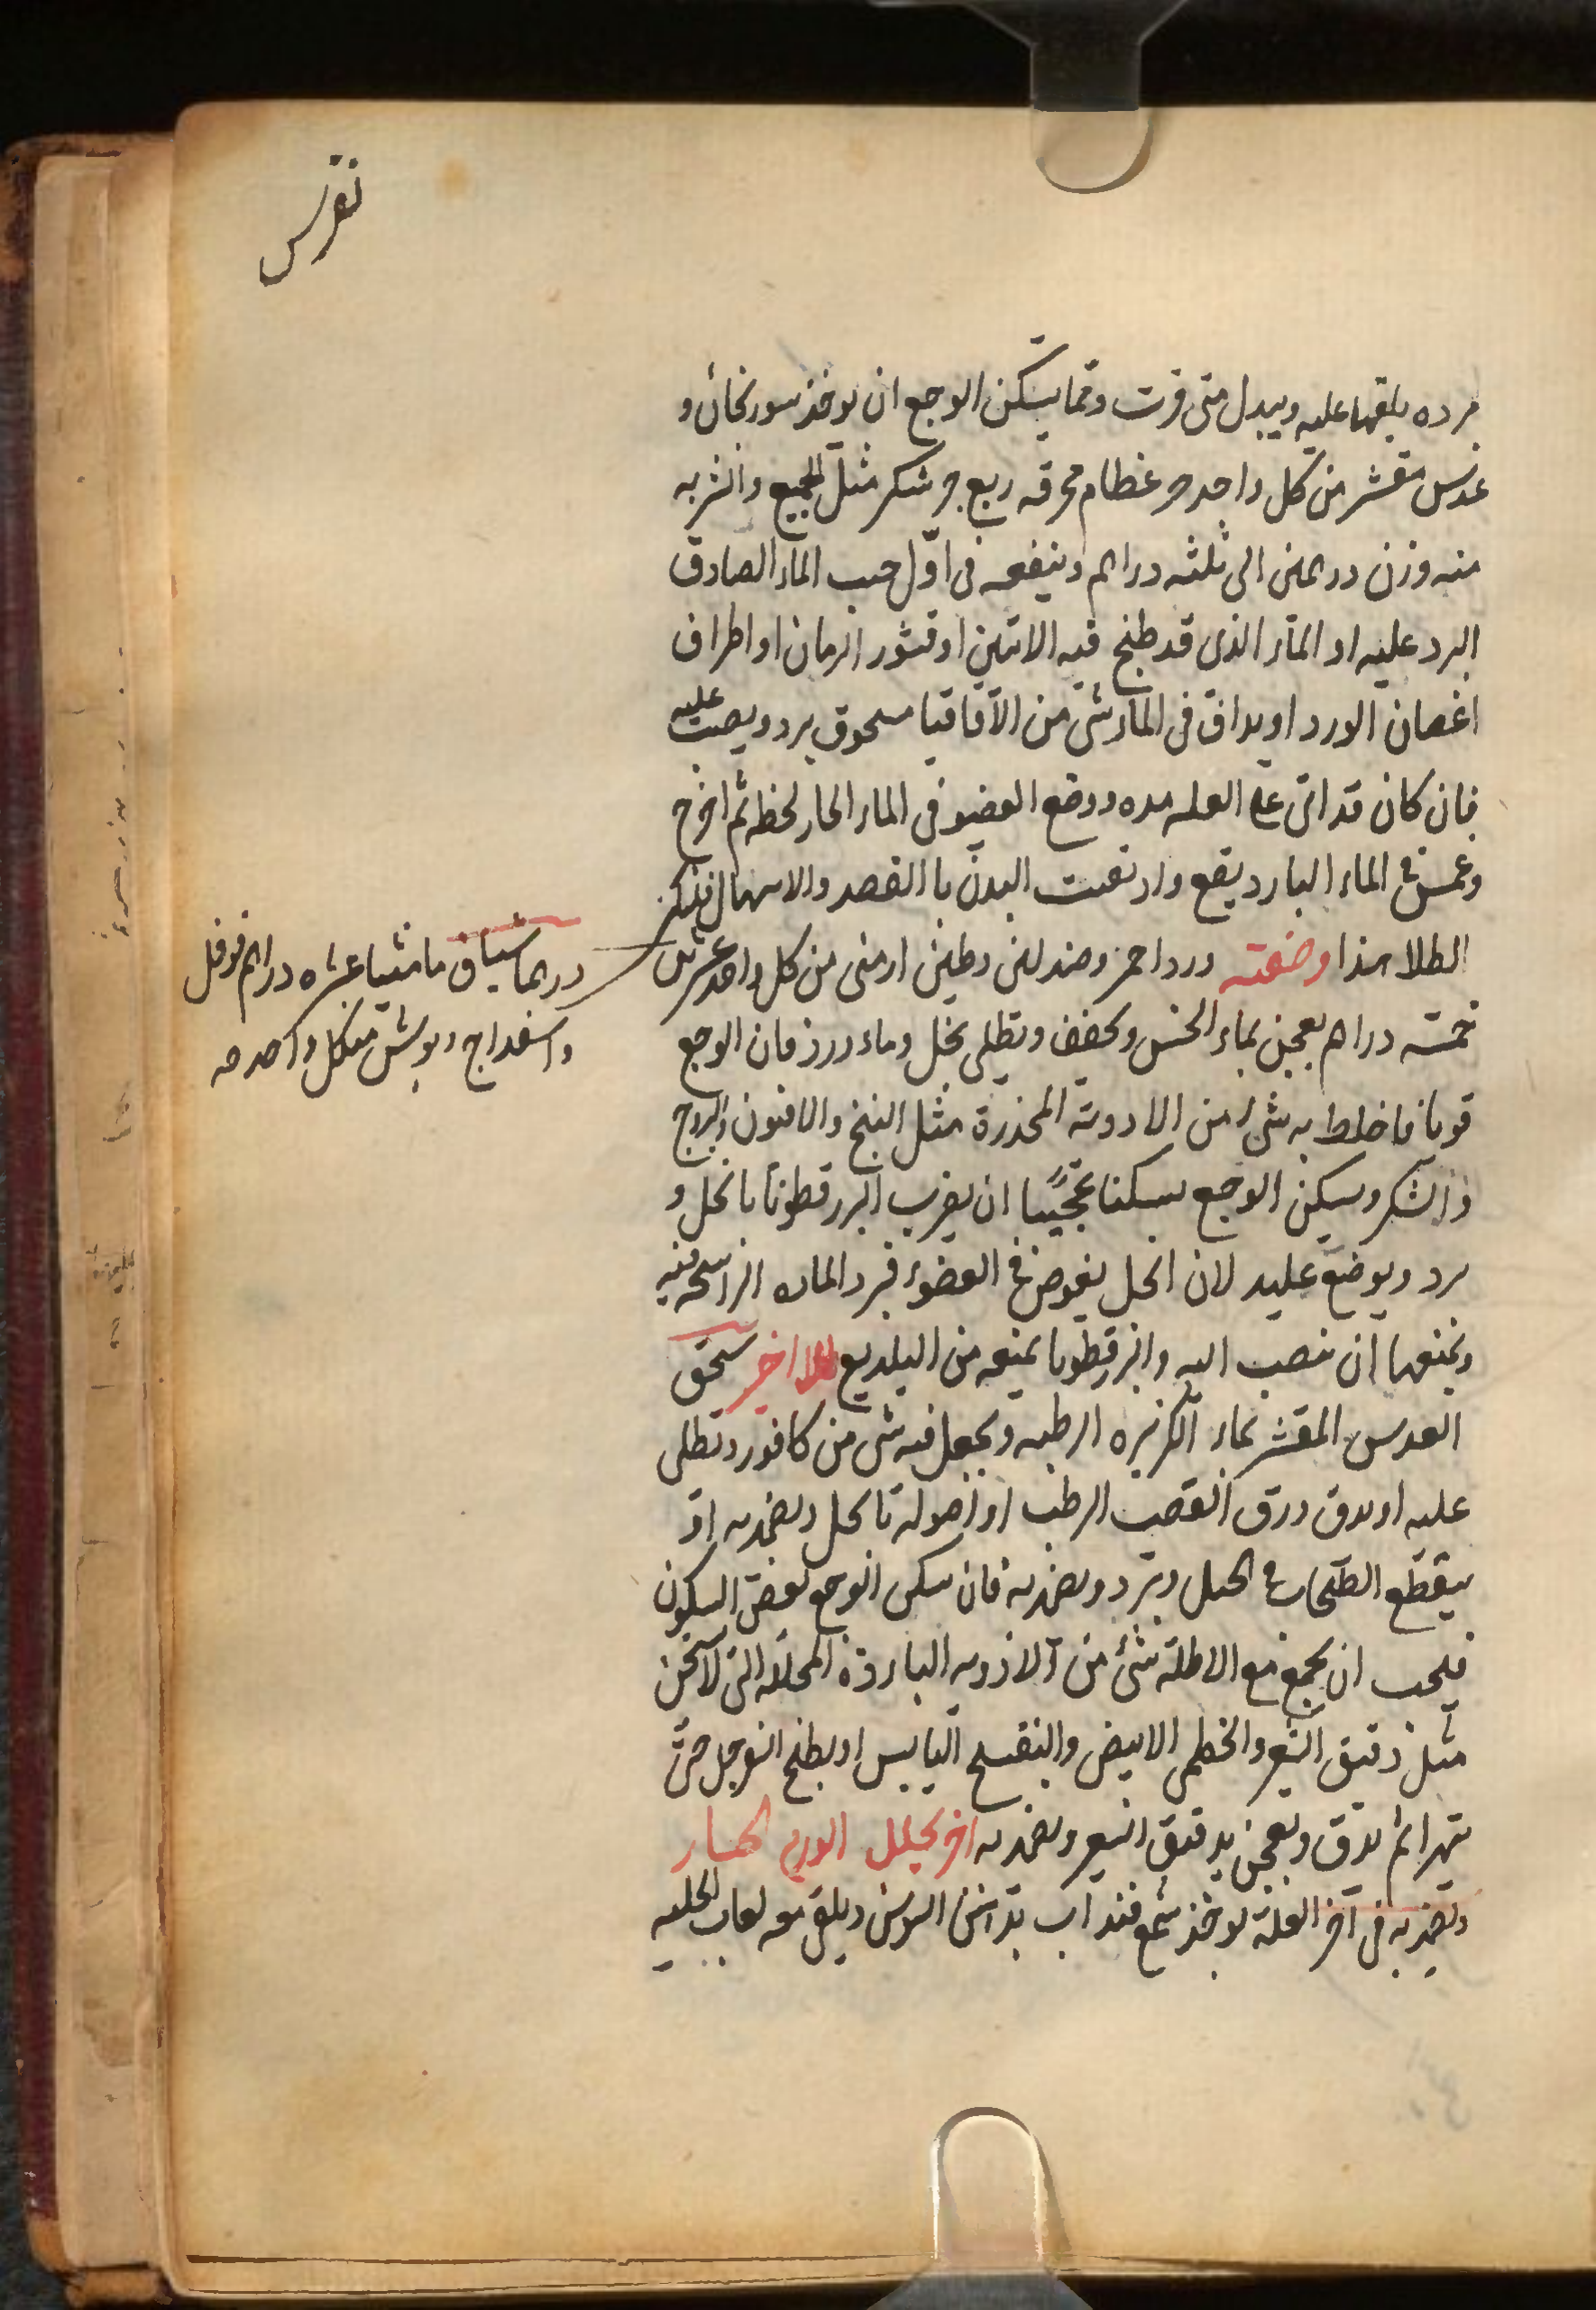 نقرس
برده يلقها عليه ويبدل متى فترت ومما يسكن الوجع ان يوخذ سورنجان و
عدس مقشر من كل واحد جز عظام محرقه ربع جز سكر مثل الجميع والشربه
منه وزن درهمين الى ثلثه دراهم وينفعه فى اول صب الماء الصادق
البرد عليه او الماء الذى قد طبخ فيه الاس او قشور الرمان او اطراف
اغصان الورد او يداف فى الماء شى من الاقاقيا مسحوق يبرد ويصب عليه
فان كان قد اتى على العله مده ووضع العضو فى الماء الحار لحظه ثم اخرج
وغمس فى الماء البارد ينفع وان نقيت البدن باالفصد والاسهال
الطلا هذا وصفته ورد احمر وصندلين وطين ارمنى من كل واحد عشرين
درهما شياف ماميثا عشره دراهم فوفل
واسفداج وبوش من كل واحد
خمسه دراهم يعجن بماء الخس ويجفف ويطلى بخل وماء ورد فان الوجع
قويا فاخلط به شى من الادويه المخدرة مثل البنج والافيون واليبروج
والشكر ويسكن الوجع تسكينا عجيبا ان يضرب البزرقطونا بالخل و
يبرد ويوضع عليه لان الخل يغوص فى العضو فيرد الماده الراسخه فيه
ويمنعها ان تنصب اليه والبزرقطونا يمنعه من التلذيع طلا اخر يسحق
العدس المقشر بماء الكزبره الرطبه ويجعل فيه شى من كافور وتطلى
عليه او يدق ورق القصب الرطب او اصوله بالخل ويضمد به او
يقطع الطحلب فى الخل ويبرد ويضمد به فان سكن الوجع بعض السكون
فيجب ان يجمع مع الاطليه شئ من الادويه البارده المحلله التى لا تسخن
مثل دقيق الشعير والخطمى الابيض والبنفسج اليابس او يطبخ السفرجل حتى
يتهرا ثم يدق ويعجن بدقيق الشعير ويضمد به اخر يحلل الورم الحار
ويضمد به فى آخر العله يوخذ شمع فيذاب بدهن السوسن ويلقى معه لعاب الحلبه